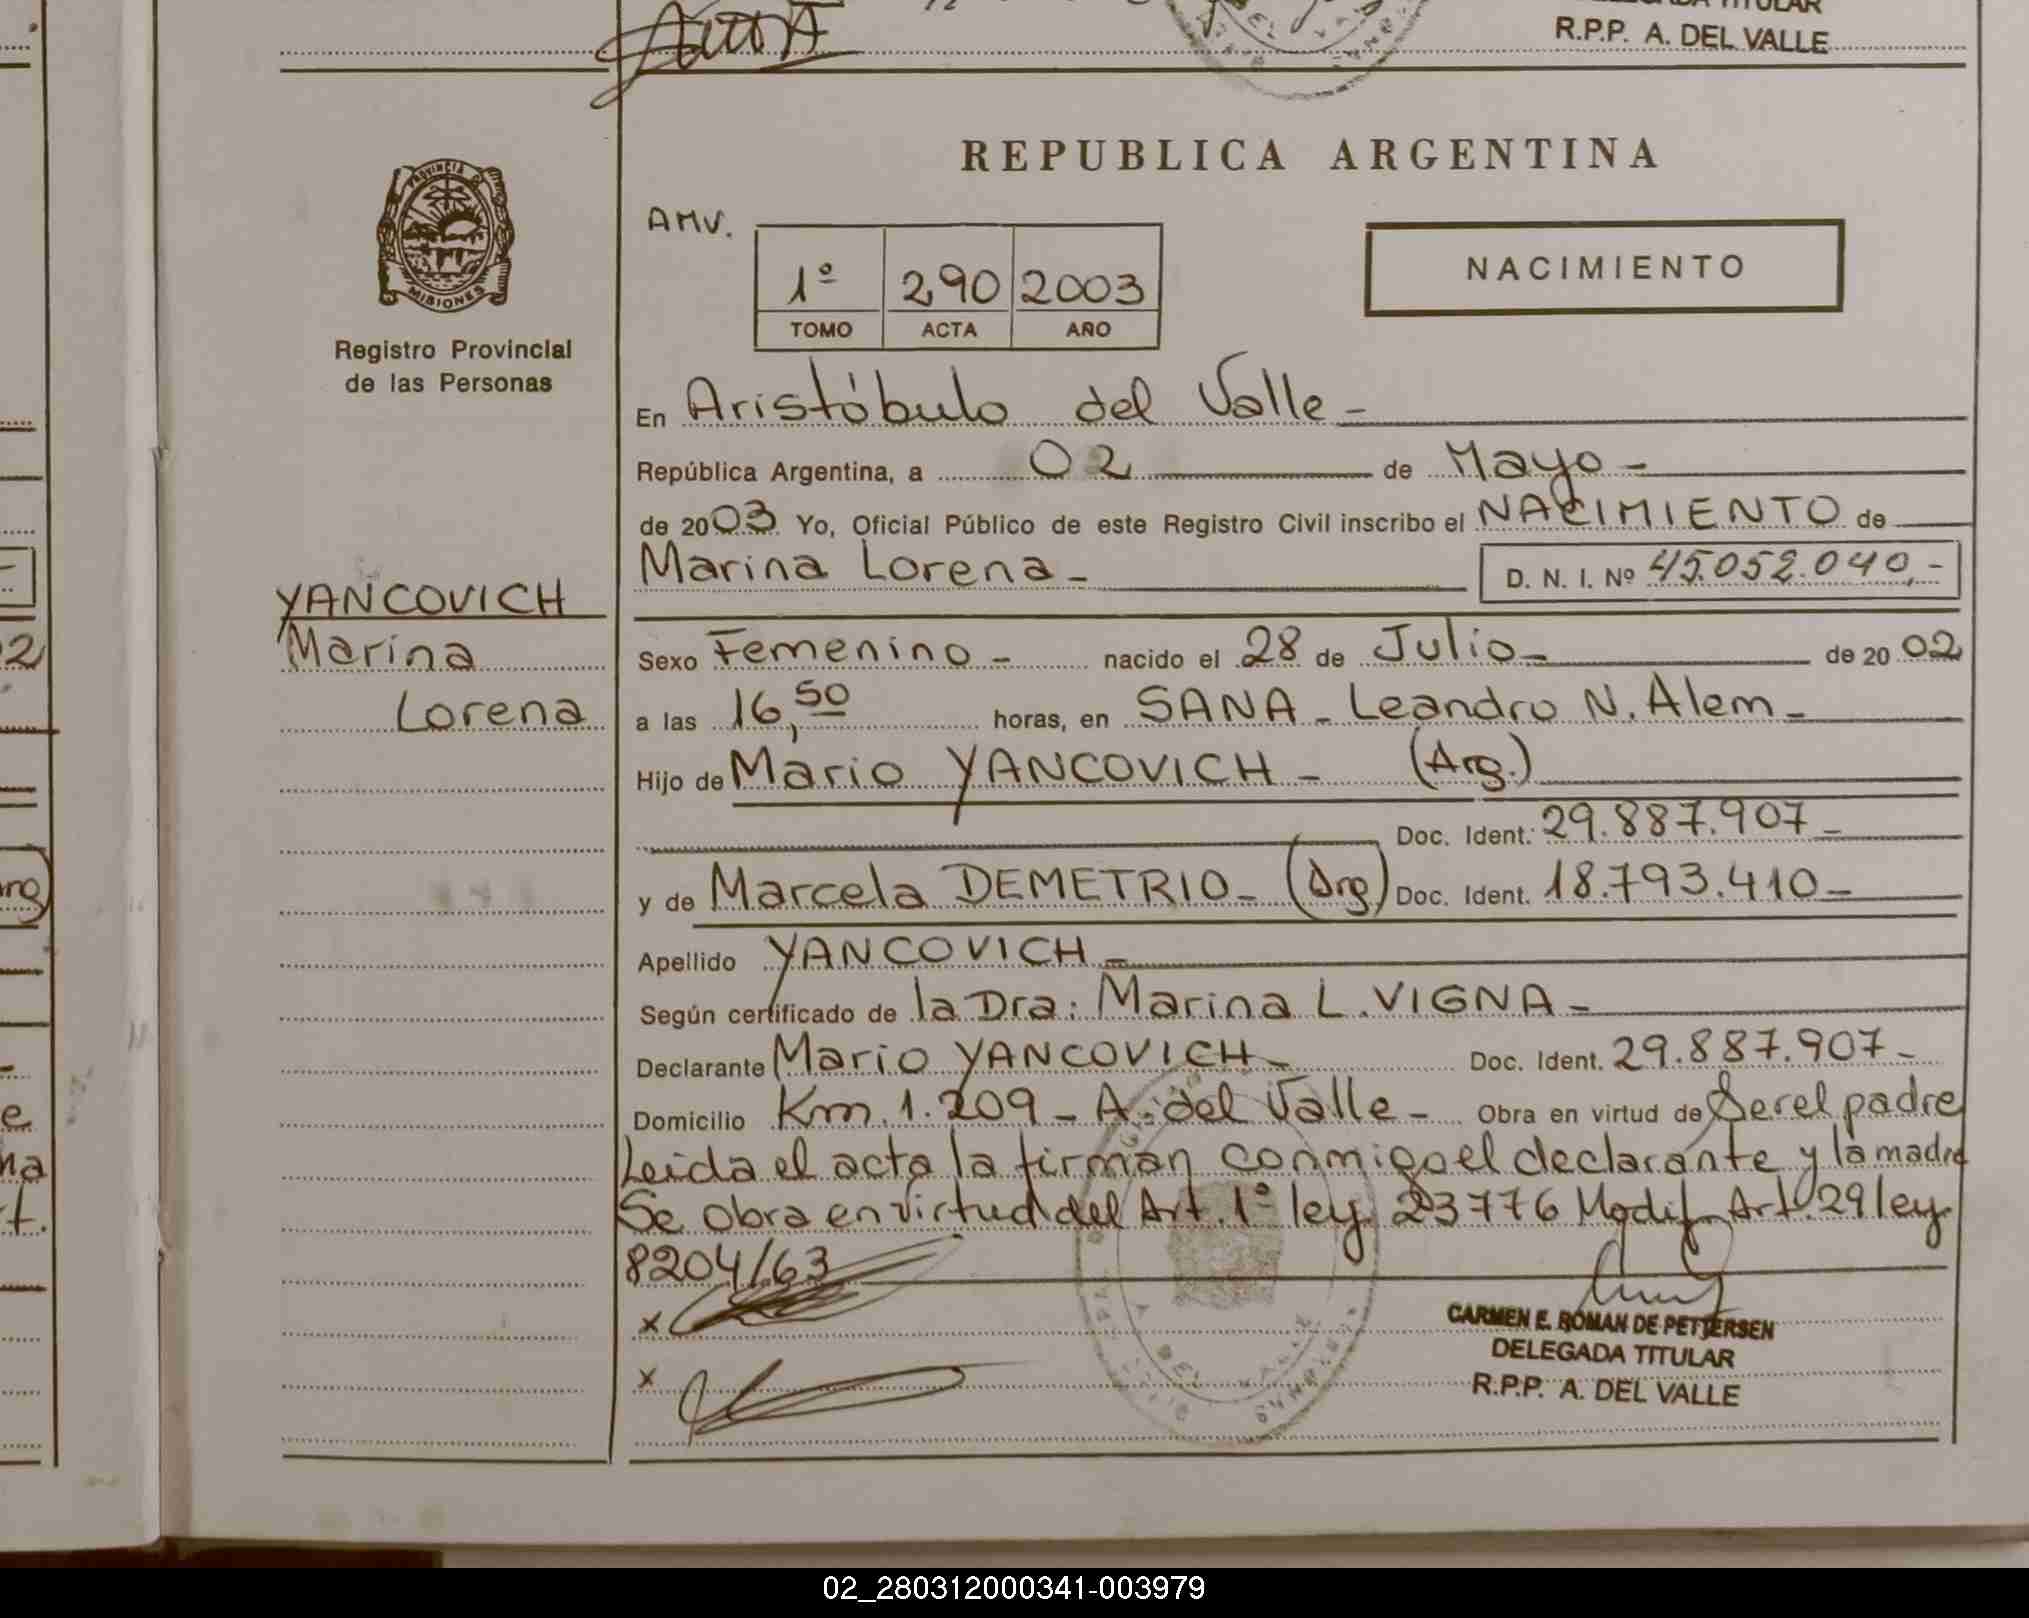 R.P.P. A. DEL VALLE
REPUBLICA ARGENTINA
PROVINCIA DE
MISIONES
Registro Provincial
de las Personas
AMV.
1º 290 2003
TOMO ACTA AÑO
NACIMIENTO
En Aristóbulo del Valle -
República Argentina, a 02 de Mayo -
de 2003 Yo, Oficial Público de este Registro Civil inscribo el NACIMIENTO de
Marina Lorena - D. N. I. Nº 45.052.040,-
YANCOVICH
Marina
Lorena
Sexo Femenino - nacido el 28 de Julio - de 2002
a las 16,50 horas, en SANA - Leandro N. Alem -
Hijo de Mario YANCOVICH - (Arg.)
Doc. Ident. 29.887.907 -
y de Marcela DEMETRIO - (Arg) Doc. Ident. 18.793.410 -
Apellido YANCOVICH -
Según certificado de la Dra: Marina L. VIGNA -
Declarante Mario YANCOVICH - Doc. Ident. 29.887.907 -
Domicilio Km. 1.209 - A. del Valle - Obra en virtud de Ser el padre
Leida el acta la firman conmigo el declarante y la madre
Se obra en virtud del Art. 1º ley 23776 Modif Art. 29 ley
8204/63
x
x
CARMEN E. ROMAN DE PETTERSEN
DELEGADA TITULAR
R.P.P. A. DEL VALLE
02_280312000341-003979